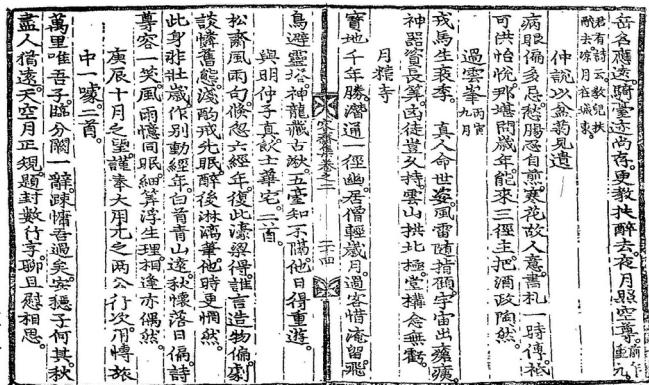 岳名應遠。騎臺迹尚存。更教扶醉去。夜月照空尊。前作重九
君有詩云教兒扶
醉去。凉月在城東。
仲說以盆菊見遺
病眼偏多忌。愁腸忍自煎。寒花故人意。書札一時傳。秪
可供怡悅。那堪問歲年。能來三徑主。把酒政陶然。
過雲峯 丙寅九月
戎馬生衰季。真人命世姿。風雷隨指顧。宇宙出瘡痍。
神器資長筭。凶徒豈久持。雲山拱北極。堂構念無虧。
月精寺
寶地千年勝。潛通一徑幽。居僧輕歲月。過客惜淹留。飛
集卷之二 二十四
鳥避靈塔。神龍藏古湫。五臺知不隔。他日得重遊。
與明仲子真諗士華宅。二首。
松齋風雨句。倏忽六經年。復此濠梁得。誰言造物偏。劇
談憐舊態。淺酌或先眠。醉後淋漓筆。他時更惘然。
此身非壯歲。作別動經年。白首青山遠。秋懷落日偏。詩
尊容一笑。風雨憶同眠。細筭浮生理。相逢亦偶然。
庚辰十月之望。謹奉大用允之兩公行次。用博旅
中一噱。二首。
萬里唯吾子。臨分闕一辭。疎慵吾過矣。安穩子何其。秋
盡人猶遠。天空月正規。題封數行字。聊且慰相思。